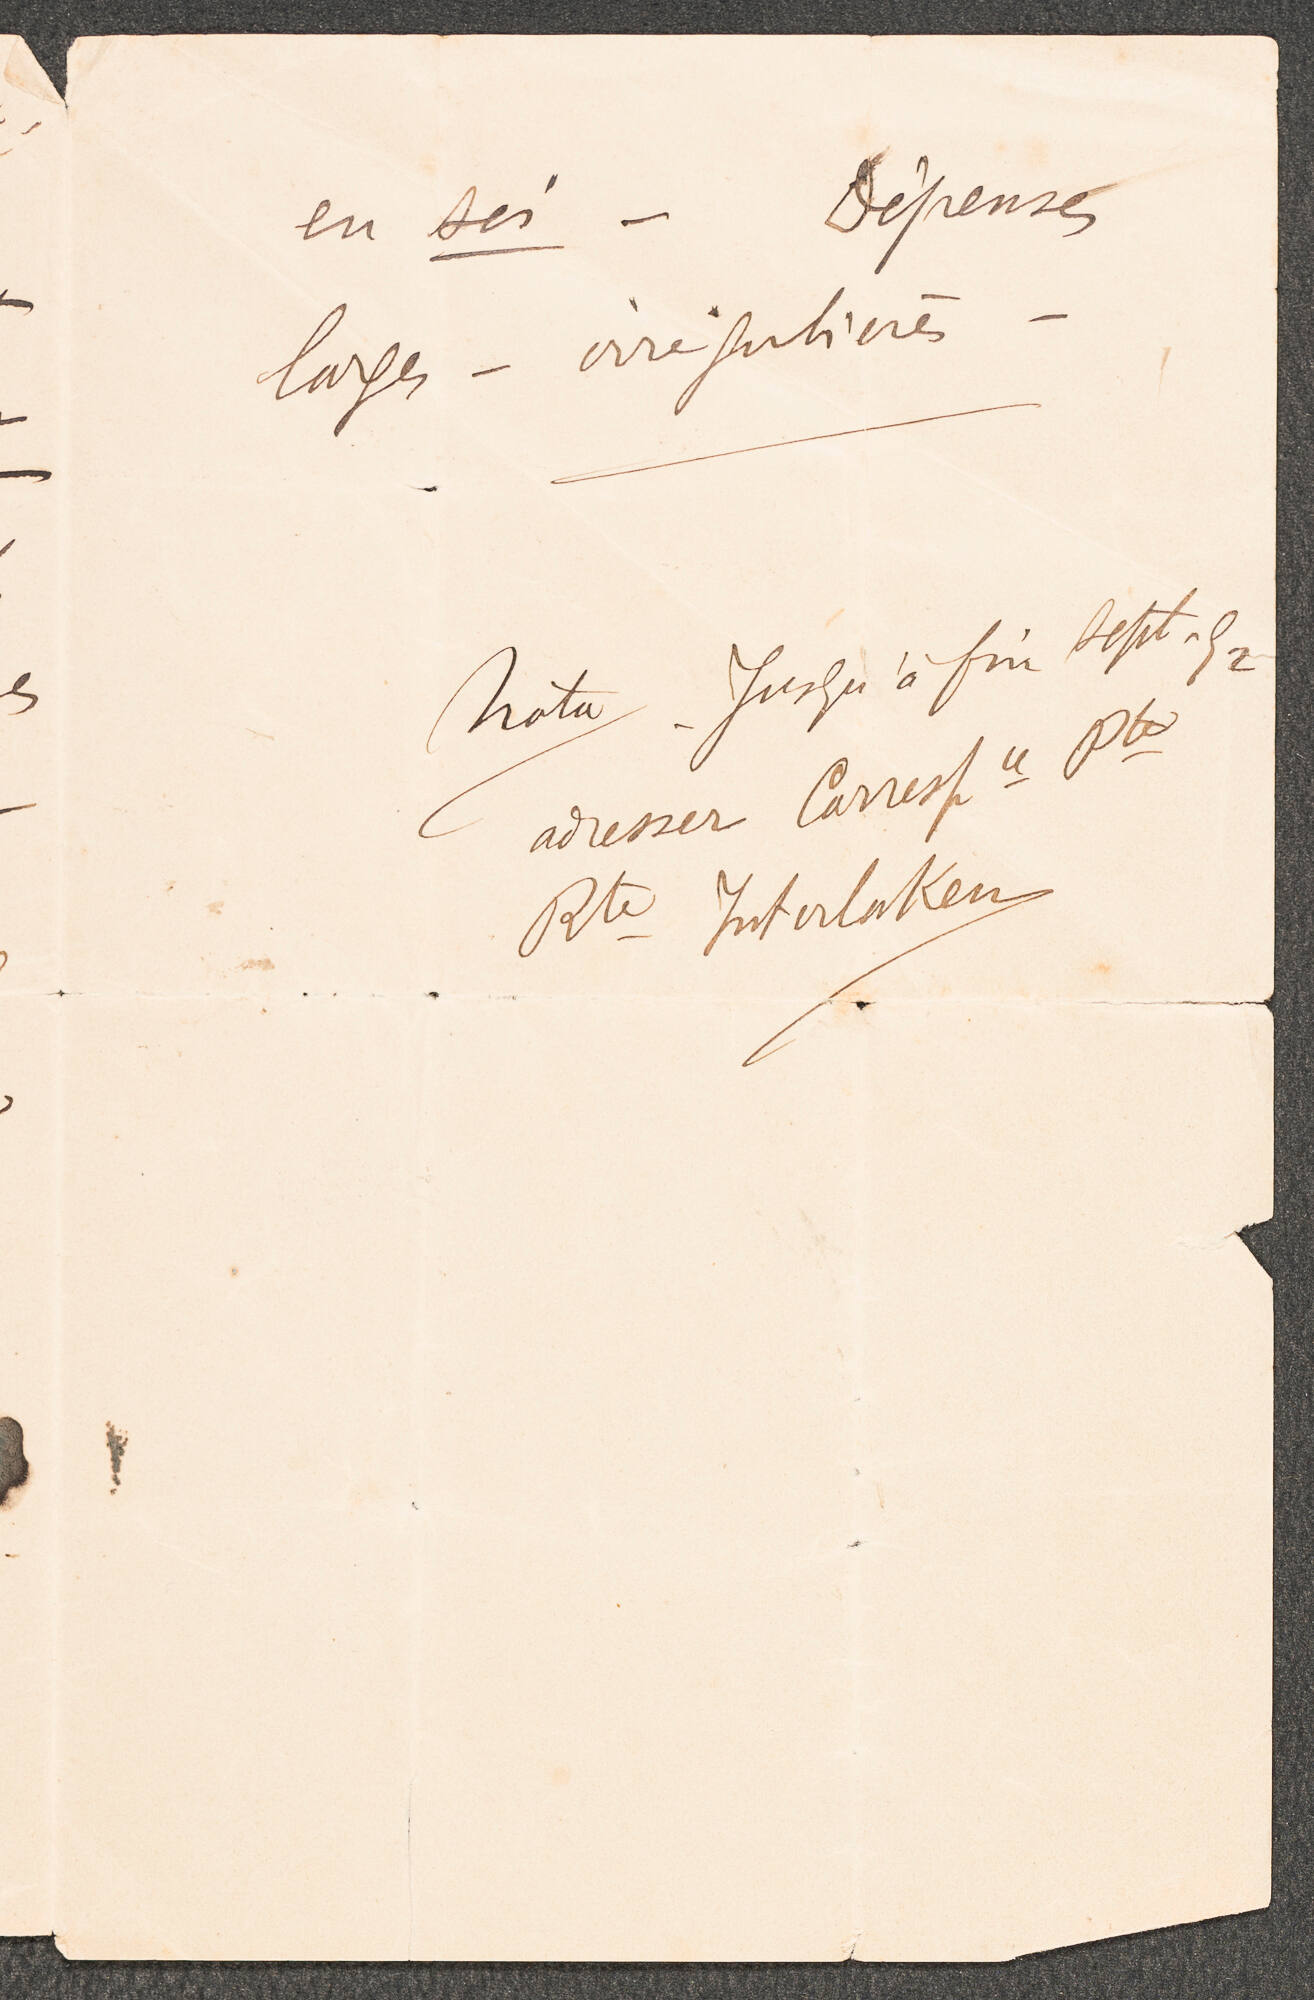 en soi - Dépenses
larges - irrégulières -
Nota - Jusqu'à fin sept. 92
adresser Corresp ce Pte
Rte Interlaken